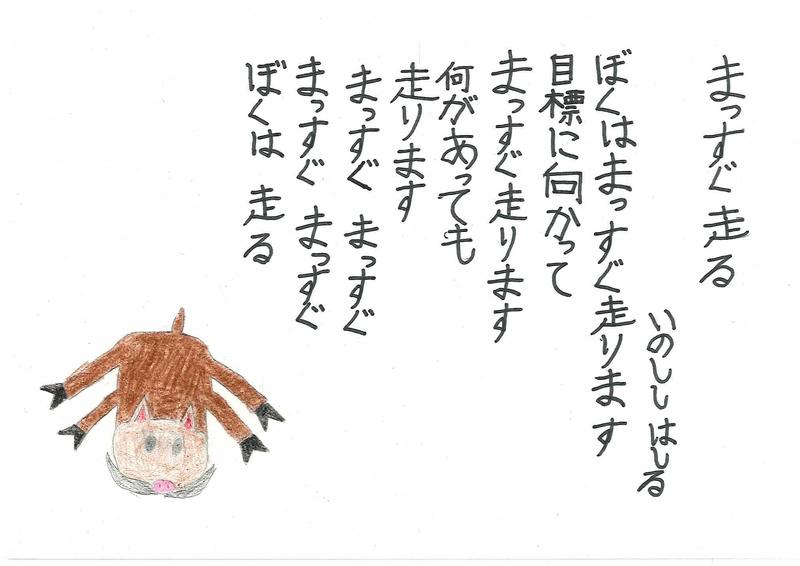 まっすぐ 走る
いのしし はしる
ぼくはまっすぐ走ります
目標に向かって
まっすぐ走ります
何があっても
走ります
まっすぐ まっすぐ
まっすぐ まっすぐ
ぼくは 走る